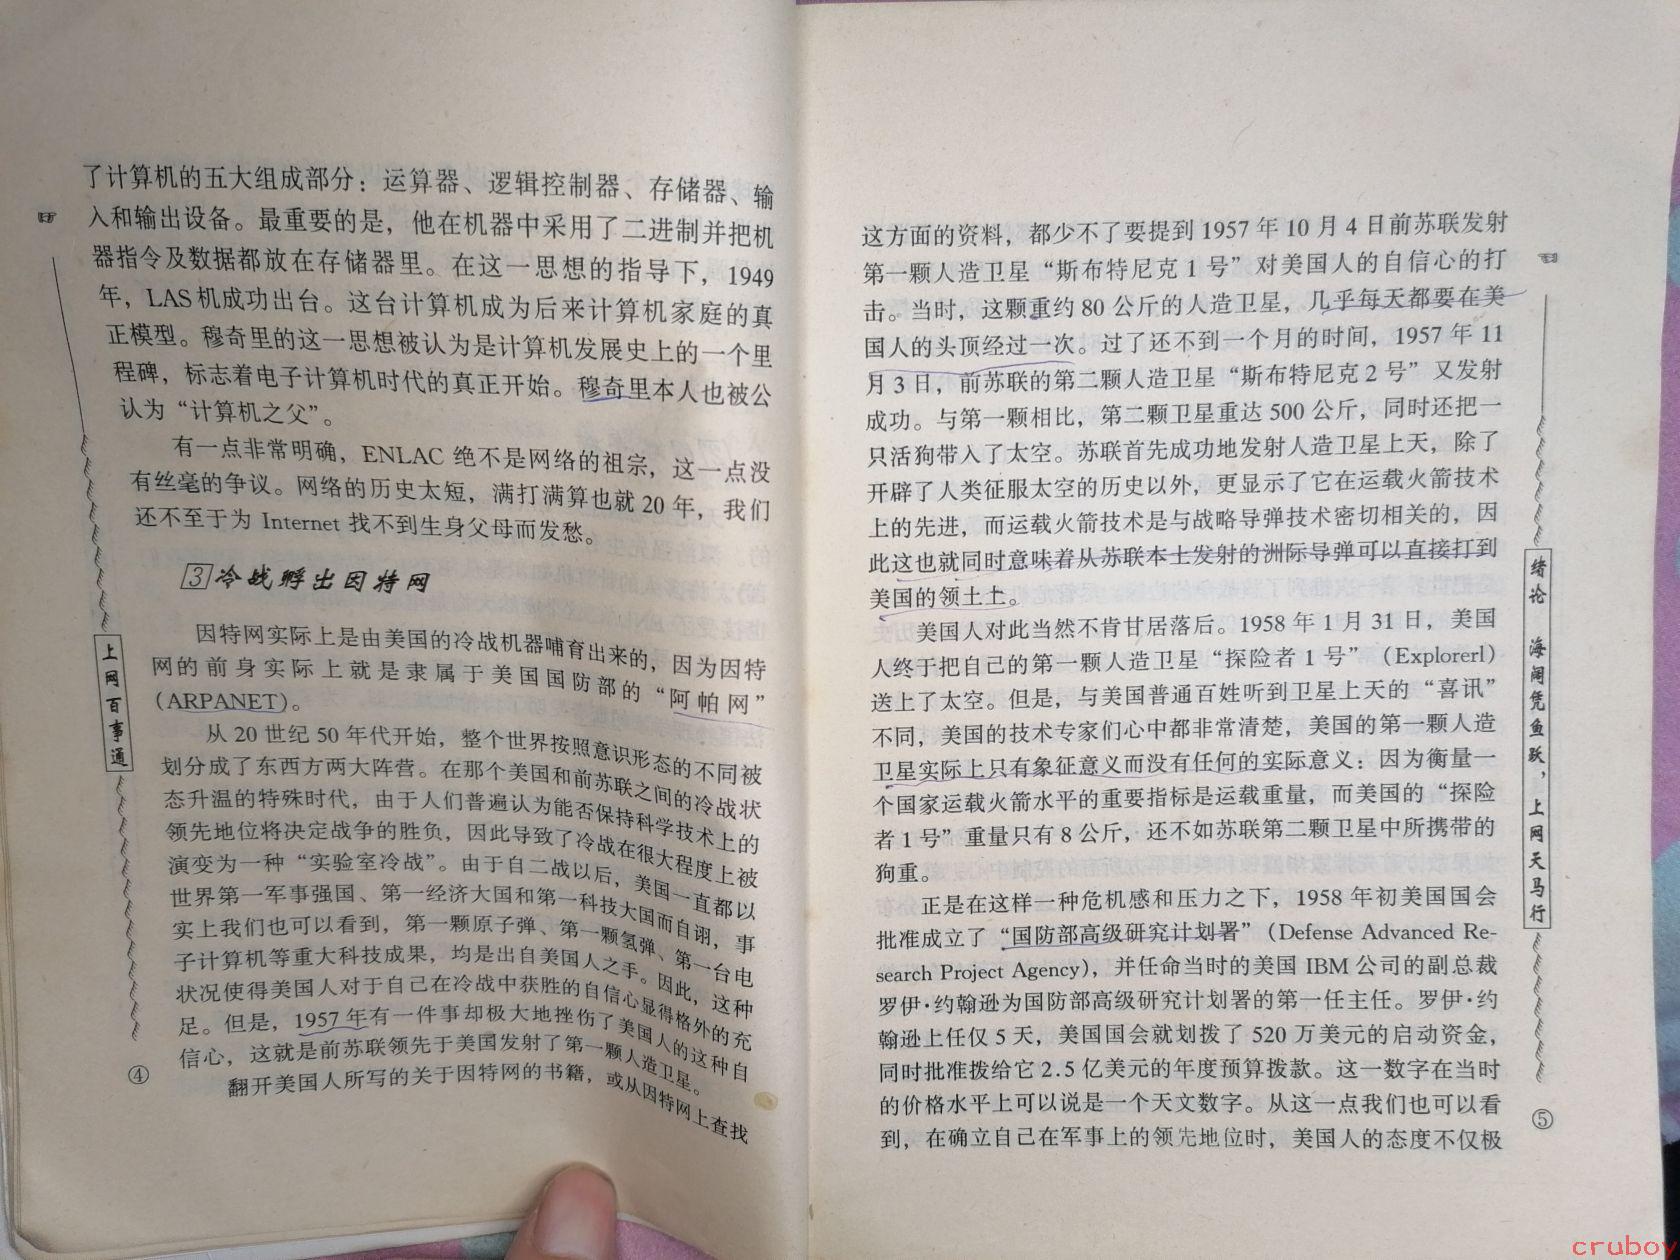 了计算机的五大组成部分：运算器、逻辑控制器、存储器、输
入和输出设备。最重要的是，他在机器中采用了二进制并把机
器指令及数据都放在存储器里。在这一思想的指导下，1949
年，LAS机成功出台。这台计算机成为后来计算机家庭的真
正模型。穆奇里的这一思想被认为是计算机发展史上的一个里
程碑，标志着电子计算机时代的真正开始。穆奇里本人也被公
认为“计算机之父”。
有一点非常明确，ENLAC 绝不是网络的祖宗，这一点没
有丝毫的争议。网络的历史太短，满打满算也就 20 年，我们
还不至于为 Internet 找不到生身父母而发愁。
3 冷战孵出因特网
因特网实际上是由美国的冷战机器哺育出来的，因为因特
网的前身实际上就是隶属于美国国防部的“阿帕网”
(ARPANET)。
从 20 世纪 50 年代开始，整个世界按照意识形态的不同被
划分成了东西方两大阵营。在那个美国和前苏联之间的冷战状
态升温的特殊时代，由于人们普遍认为能否保持科学技术上的
领先地位将决定战争的胜负，因此导致了冷战在很大程度上被
演变为一种“实验室冷战”。由于自二战以后，美国一直都以
世界第一军事强国、第一经济大国和第一科技大国而自诩，事
实上我们也可以看到，第一颗原子弹、第一颗氢弹、第一台电
子计算机等重大科技成果，均是出自美国人之手。因此，这种
状况使得美国人对于自己在冷战中获胜的自信心显得格外的充
足。但是，1957 年有一件事却极大地挫伤了美国人的这种自
信心，这就是前苏联领先于美国发射了第一颗人造卫星。
翻开美国人所写的关于因特网的书籍，或从因特网上查找
上网百事通
④
这方面的资料，都少不了要提到 1957 年 10 月 4 日前苏联发射
第一颗人造卫星“斯布特尼克 1 号”对美国人的自信心的打
击。当时，这颗重约 80 公斤的人造卫星，几乎每天都要在美
国人的头顶经过一次。过了还不到一个月的时间，1957 年 11
月 3 日，前苏联的第二颗人造卫星“斯布特尼克 2 号”又发射
成功。与第一颗相比，第二颗卫星重达 500 公斤，同时还把一
只活狗带入了太空。苏联首先成功地发射人造卫星上天，除了
开辟了人类征服太空的历史以外，更显示了它在运载火箭技术
上的先进，而运载火箭技术是与战略导弹技术密切相关的，因
此这也就同时意味着从苏联本土发射的洲际导弹可以直接打到
美国的领土上。
美国人对此当然不肯甘居落后。1958 年 1 月 31 日，美国
人终于把自己的第一颗人造卫星“探险者 1 号”（Explorerl）
送上了太空。但是，与美国普通百姓听到卫星上天的“喜讯”
不同，美国的技术专家们心中都非常清楚，美国的第一颗人造
卫星实际上只有象征意义而没有任何的实际意义：因为衡量一
个国家运载火箭水平的重要指标是运载重量，而美国的“探险
者 1 号”重量只有 8 公斤，还不如苏联第二颗卫星中所携带的
狗重。
正是在这样一种危机感和压力之下，1958 年初美国国会
批准成立了“国防部高级研究计划署”（Defense Advanced Re-
search Project Agency），并任命当时的美国 IBM 公司的副总裁
罗伊·约翰逊为国防部高级研究计划署的第一任主任。罗伊·约
翰逊上任仅 5 天，美国国会就划拨了 520 万美元的启动资金，
同时批准拨给它 2.5 亿美元的年度预算拨款。这一数字在当时
的价格水平上可以说是一个天文数字。从这一点我们也可以看
到，在确立自己在军事上的领先地位时，美国人的态度不仅极
绪论 海阔凭鱼跃，上网天马行
⑤
cruboy